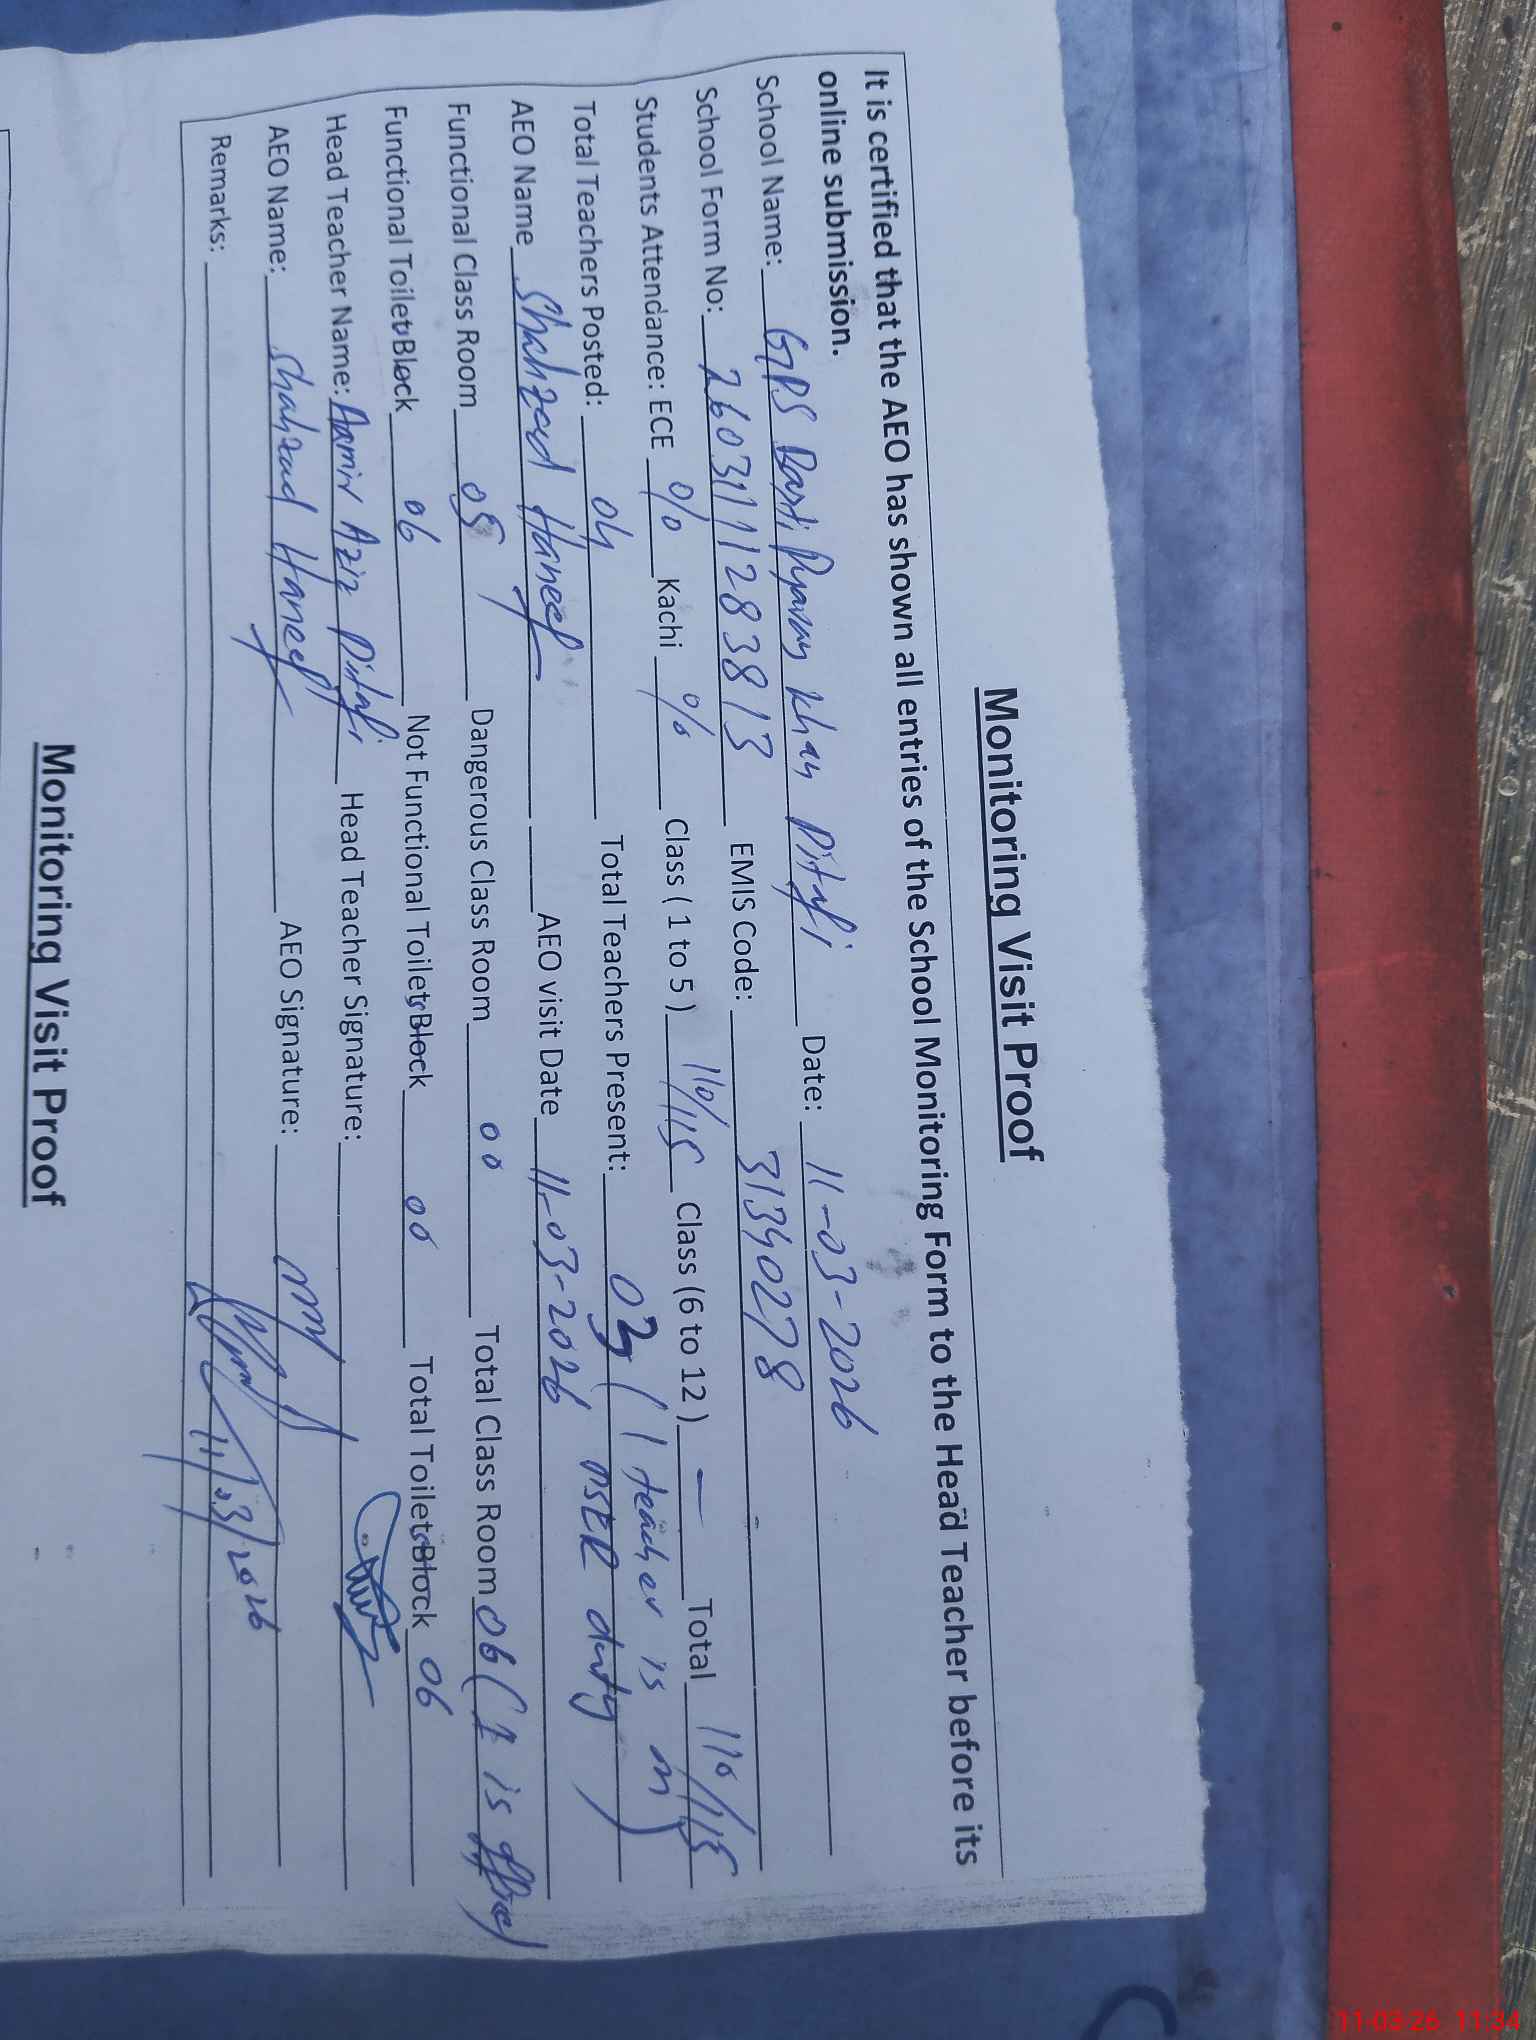 Monitoring Visit Proof
It is certified that the AEO has shown all entries of the School Monitoring Form to the Head Teacher before its
online submission.
School Name: GPS Basti Pyaray Khan Pitafi Date: 11-03-2026
School Form No: 2603111283813 EMIS Code: 31340278
Students Attendance: ECE 0/0 Kachi 0/0 Class ( 1 to 5 ) 110/115 Class (6 to 12 ) — Total 110/115
Total Teachers Posted: 04 Total Teachers Present: 03 ( 1 teacher is in PSER duty )
AEO Name Shahzad Haneef AEO visit Date 11-03-2026
Functional Class Room 05 Dangerous Class Room 00 Total Class Room 06 (1 is office)
Functional Toilets Block 06 Not Functional Toilets Block 00 Total Toilets Block 06
Head Teacher Name: Aamir Aziz Pitafi Head Teacher Signature:
AEO Name: Shahzad Haneef AEO Signature:
Remarks: 11/03/2026
Monitoring Visit Proof
11-03-26 11:34